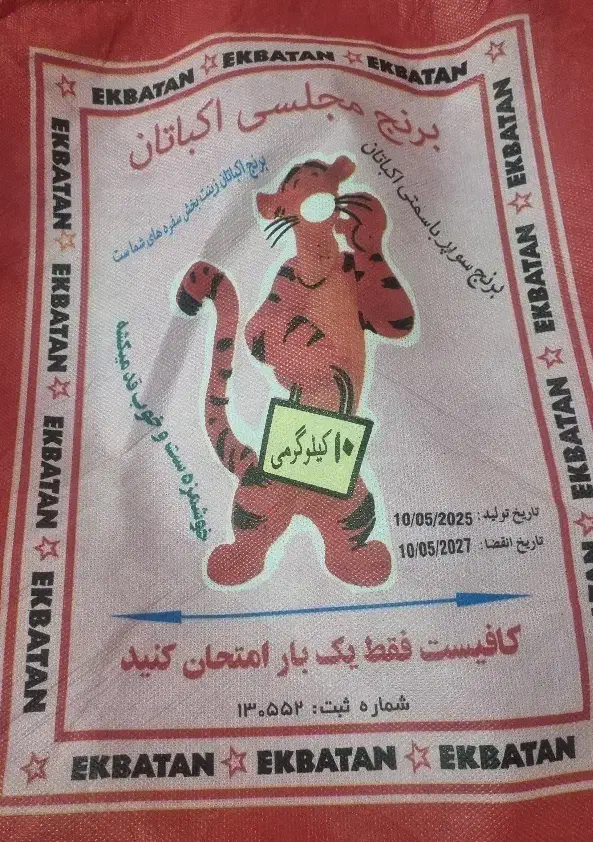 EKBATAN EKBATAN EKBATAN
برنج مجلسی اکباتان
برنج اکباتان زینت بخش سفره های شما ست
برنج سوپر باسمتی اکباتان
خوشمزه ست و خوب قد میکشد
۱۰ کیلوگرمی
تاریخ تولید: 10/05/2025
تاریخ انقضا: 10/05/2027
کافیست فقط یک بار امتحان کنید
شماره ثبت: ۱۳۰۵۵۲
EKBATAN EKBATAN EKBATAN EKBATAN
EKBATAN EKBATAN EKBATAN EKBATAN
EKBATAN EKBATAN EKBATAN